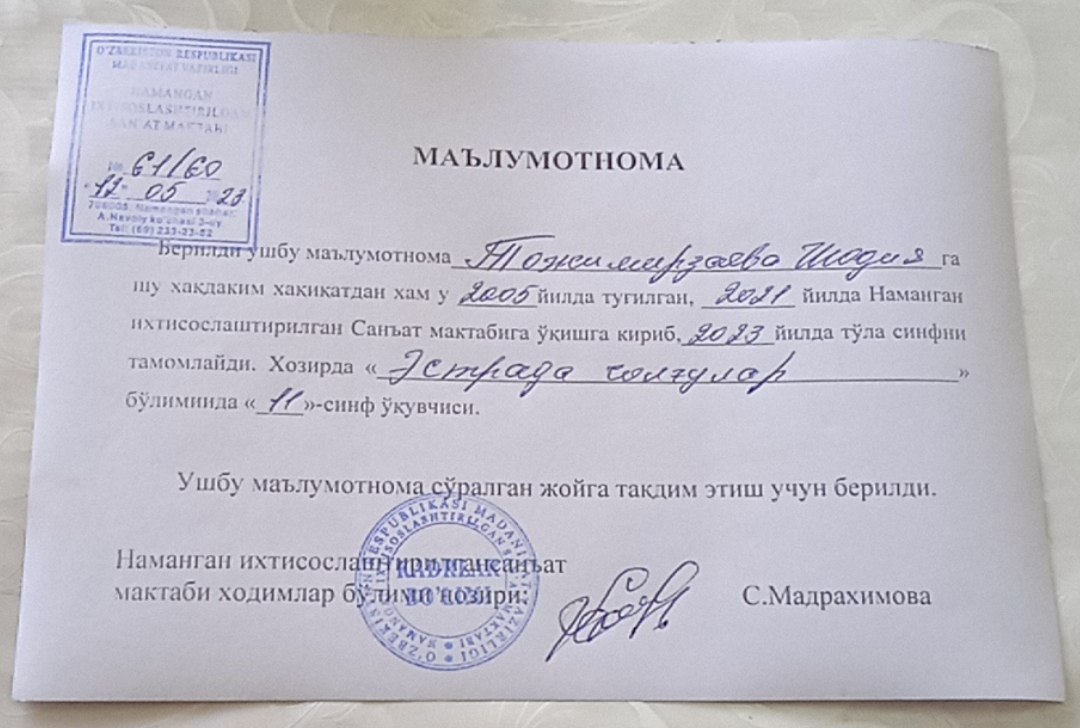 O'ZBEKISTON RESPUBLIKASI
MADANIYAT VAZIRLIGI
NAMANGAN
IXTISOSLASHTIRILGAN
SAN'AT MAKTABI
№ 61/60
"12" 05 2023
A.Navoiy ko'chasi 2-uy
Tel: (69) 233-23-52
МАЪЛУМОТНОМА
Берилди ушбу маълумотнома Тожимирзаева Шодия га
шу хақдаким хақиқатдан хам у 2005 йилда туғилган, 2021 йилда Наманган
ихтисослаштирилган Санъат мактабига ўқишга кириб, 2023 йилда тўла синфни
тамомлайди. Хозирда « Эстрада чолғулар »
бўлимиида « 11 »-синф ўқувчиси.
Ушбу маълумотнома сўралган жойга тақдим этиш учун берилди.
Наманган ихтисослаштирилгансанъат
мактаби ходимлар бўлими нозири: С.Мадрахимова
O'ZBEKISTON RESPUBLIKASI MADANIYAT VAZIRLIGI
NAMANGAN IXTISOSLASHTIRILGAN SAN'AT MAKTABI
KADRLAR
BO'LIMI